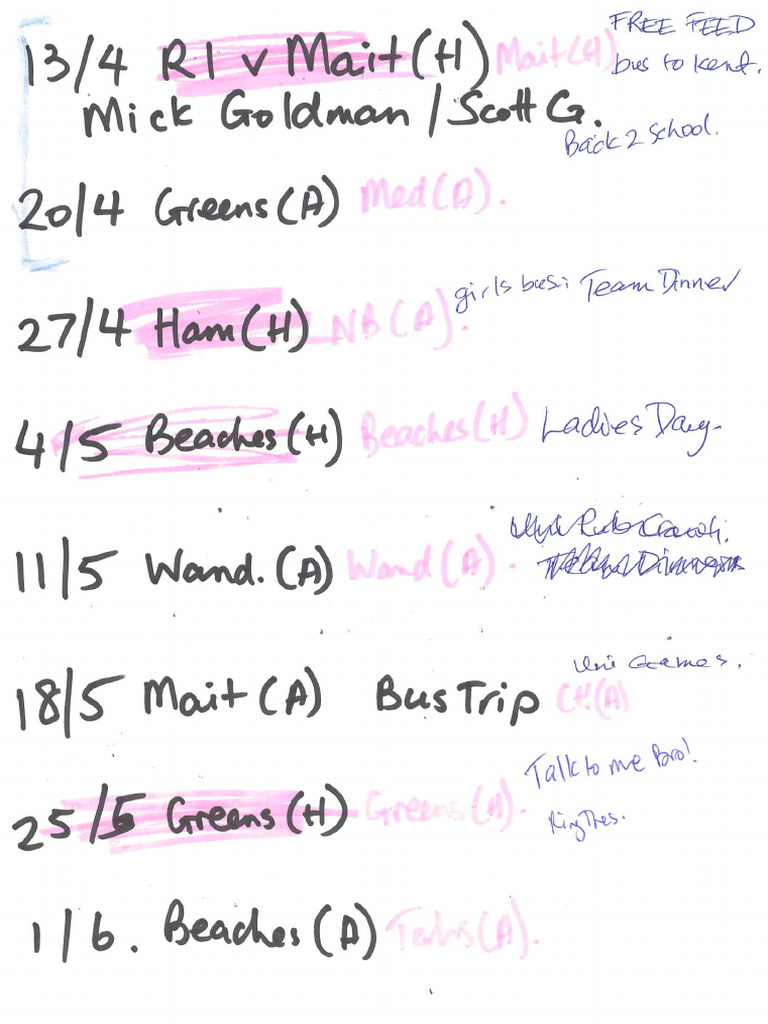 13/4 R1 v Mait (H) Mait (A) FREE FEED
bus to Kent.
Mick Goldman / Scott G.
Back 2 School.
20/4 Greens (A) Med (A).
27/4 Ham (H) NB (A). girls bus: Team Dinner
4/5 Beaches (H) Beaches (H) Ladies Day
11/5 Wand. (A) Wand (A). Pub Crawl.
Dinner
18/5 Mait (A) Bus Trip CH (A) Uni Games.
25/5 Greens (H) Greens (H). Talk to me Bro!
1/6. Beaches (A) (A).